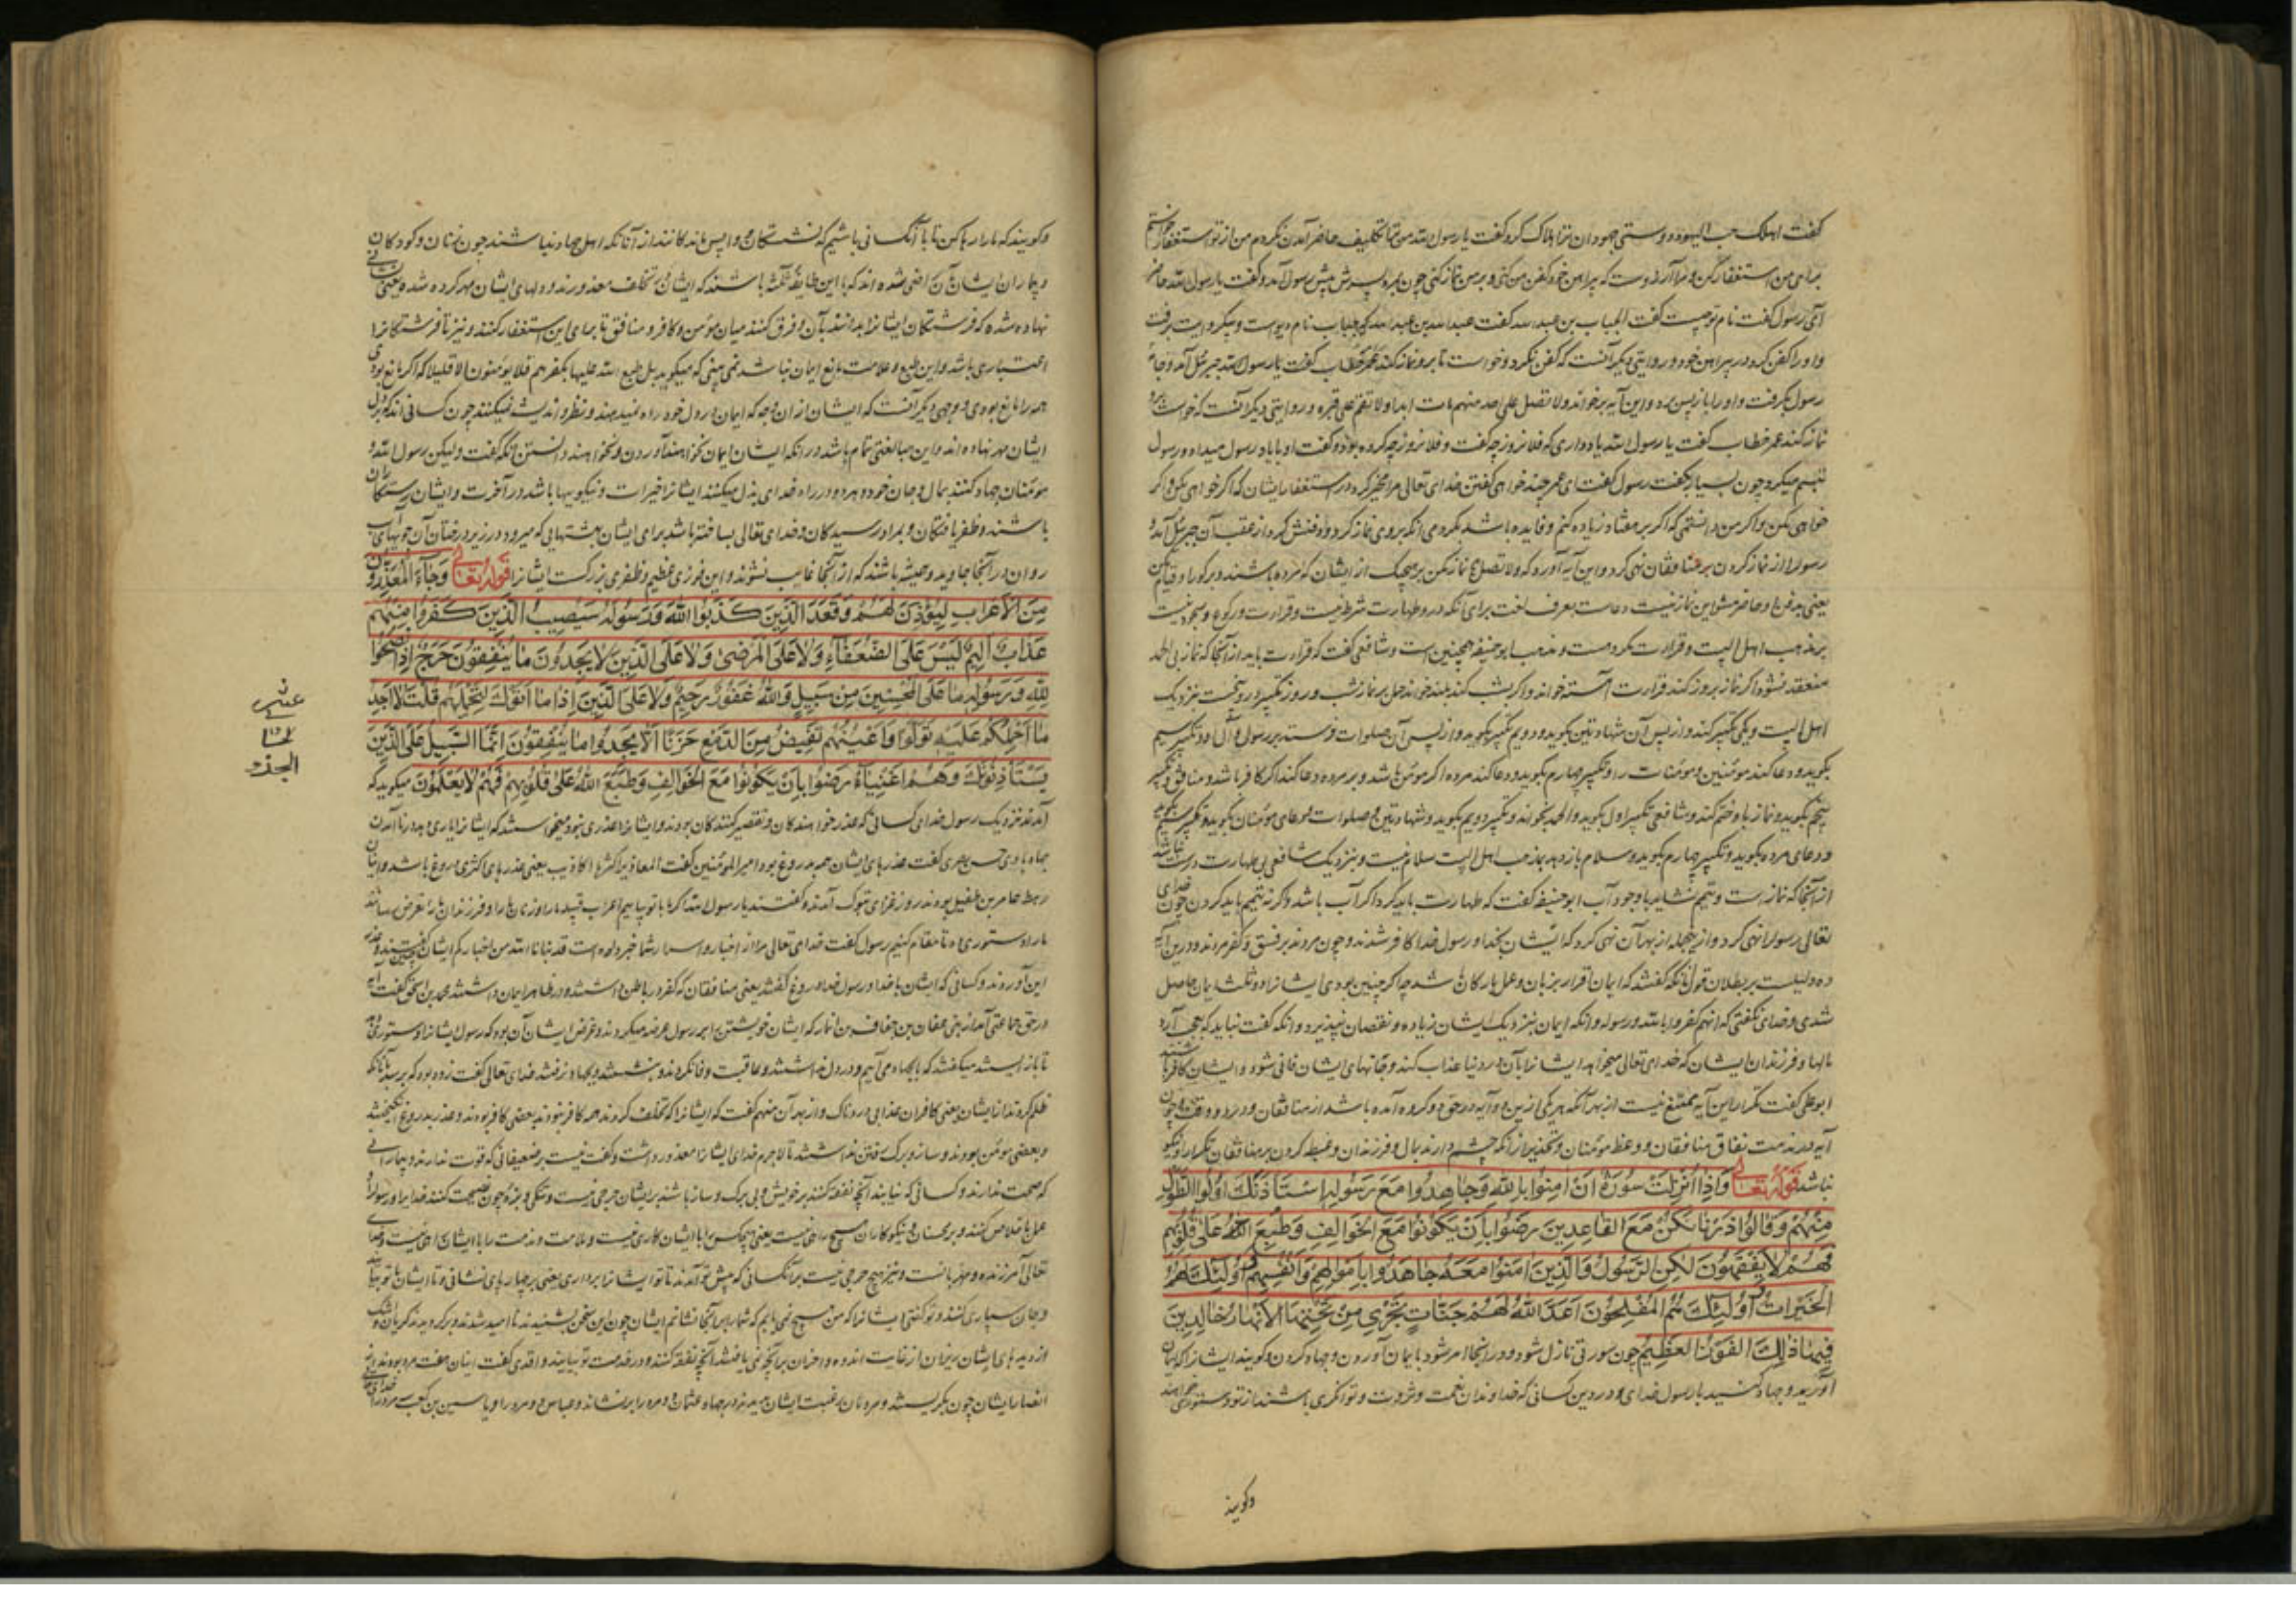 کفت اهلک حب الیهود دوستی جهودان ترا هلاک کرد و کفت یا رسول الله من ترا تکلیف حاضر آمدن نکردم من از تو استغفار
برای من استغفار کن و مرا آرزوست که پیراهن خود کفن من کنی و بر من نماز کنی چون بمرد پسرش پیش رسول آمد و کفت یا رسول الله حاضر
آی رسول کفت نام تو چیست کفت الحباب بن عبد الله کفت عبد الله بن عبد الله که حباب نام دیوست و دیکر روایت برفت
و او را کفن کرد در پیراهن خود و روایتی دیکر آنست که کفن نکرد و خواست تا برو نماز کند عمر خطاب کفت یا رسول الله جبرئل آمد و جامه
رسول بکرفت و او را باز پس برد و این آیه برخواند ولا تصل علی احد منهم مات ابدا ولا تقم علی قبره و روایتی دیکر آنست که خواست برو
نماز کند عمر خطاب کفت یا رسول الله یاد داری که فلان روز چه کفت و فلان روز چه کرده بود و کفت او با یاد رسول میداد و رسول
تبسم میکرد چون بسیار بکفت رسول کفت ای عمر چند خواهی کفتن خدای تعالی مرا مخیر کرد در استغفار ایشان که اکر خواهی بکن و اکر
خواهی مکن و اکر من دانستمی که اکر بر هفتاد زیاده کنم و فایده باشد بکردمی آنکه بروی نماز کرد و دفنش کرد از عقب آن جبرئل آمد و
رسول را از نماز کردن بر منافقان نهی کرد و این آیه آورد که ولا تصل نماز مکن بر هیچیک از ایشان که مرده باشند و بر کور او قیام مکن
یعنی بدفن او حاضر مشو این نماز نیست دعاست بعرف لغت برای آنکه درو طهارت شرط نیست و قراءت و رکوع و سجود نیست
بر مذهب اهل البیت و قراءت مکروهست و مذهب ابو حنیفه همچنین است و شافعی کفت که قراءت باید از آنجا که نماز بی الحمد
منعقد نشود اکر نماز بروز کند قراءت آهسته خواند و اکر بشب کند بلند خواند حمل بر نماز شب و روز و تکبیر درو پنجست بنزدیک
اهل البیت و یکی تکبیر کند و از پس آن شهادتین بکوید و دویم تکبیر بکوید و از پس آن صلوات فرستد بر رسول و آل او و تکبیر سیم
بکوید و دعا کند مومنین و مومنات را و تکبیر چهارم بکوید و دعا کند مرده را اکر مومن باشد و بر مرده دعا کند اکر کافر باشد و منافق و تکبیر
پنجم بکوید و نماز باو ختم کند و شافعی تکبیر اول بکوید و الحمد بخواند و تکبیر دویم بکوید و شهادتین و صلوات و دعای مومنان بکوید و تکبیر سیم بکوید
و دعای مرده بکوید و تکبیر چهارم بکوید و سلام باز دهد بمذهب اهل البیت سلام نیست و بنزدیک شافعی بی طهارت درست نباشد
از آنجا که نماز است و تیمم نشاید با وجود آب ابو حنیفه کفت که طهارت باید کرد اکر آب باشد و اکر نه تیمم باید کردن چون خدای
تعالی رسول را نهی کرد و از پیجمله از بهر آن نهی کرد که ایشان بخدا و رسول خدا کافر شدند و چون مردند بر فسق و کفر مردند و درین آیه
ده دلیلست بر بطلان قول آنکه کفتند که ایمان اقرار بزبان و عمل بارکان باشد چه اکر چنین بودی ایشانرا دو ثلث ایمان حاصل
شدی و خدای نکفتی که انهم کفروا بالله و رسوله و آنکه ایمان بنزدیک ایشان زیاده و نقصان پذیرد و آنکه کفت نباید که عجب آرد
مالها و فرزندان ایشان که خدای تعالی میخواهد ایشانرا بآن در دنیا عذاب کند و جانهای ایشان فانی شود و ایشان کافر باشند
ابو علی کفت تکرار این آیه ممتنع نیست از بهر آنکه هر یکی ازین دو آیه در حق دو کروه آمده باشد از منافقان و در دو وقت چون
آیه در مذمت نفاق منافقان و وعظ مومنان و تحذیر از آنکه چشم دارند بمال و فرزندان و غبطه کردن بر منافقان تکرار نیکو
نباشد قوله تعالی وَاِذَا اُنْزِلَتْ سُورَةٌ اَنْ اٰمِنُوا بِاللّٰهِ وَجَاهِدُوا مَعَ رَسُولِهِ اسْتَأْذَنَكَ اُولُوا الطَّوْلِ
مِنْهُمْ وَقَالُوا ذَرْنَا نَكُنْ مَعَ الْقَاعِدِينَ رَضُوا بِاَنْ يَكُونُوا مَعَ الْخَوَالِفِ وَطُبِعَ اللّٰهُ عَلٰى قُلُوبِهِمْ
فَهُمْ لَا يَفْقَهُونَ لٰكِنِ الرَّسُولُ وَالَّذِينَ اٰمَنُوا مَعَهُ جَاهَدُوا بِاَمْوَالِهِمْ وَاَنْفُسِهِمْ وَاُولٰئِكَ لَهُمُ
الْخَيْرَاتُ وَاُولٰئِكَ هُمُ الْمُفْلِحُونَ اَعَدَّ اللّٰهُ لَهُمْ جَنَّاتٍ تَجْرِي مِنْ تَحْتِهَا الْاَنْهَارُ خَالِدِينَ
فِيهَا ذٰلِكَ الْفَوْزُ الْعَظِيمُ چون سورتی نازل شود و در آنجا امر شود بایمان آوردن و جهاد کردن و کویند ایشانرا که ایمان
آورید و جهاد کنید با رسول خدای و در دین کسانی که خداوندان نعمت و ثروت و توانکری باشند از تو دستوری خواهند
وکویند
وکویند که ما را رها کن تا با آنکسانی باشیم که نشستکان و واپس ماندکانند از آنانکه اهل جهاد نباشند چون زنان و کودکان
و بیماران ایشان راضی شده اند که با این طایفه باشند که ایشان بتخلف معذورند و دلهای ایشان مهر کرده شده یعنی نشانی
نهاده شده که فرشتکان ایشانرا بدانند بآن و فرق کنند میان مومن و کافر و منافق تا بجای این استغفار کنند و نیز تا فرشتکانرا
اعتباری باشد و این طبع و علامت مانع ایمان نباشد نمی بینی که میکوید بل طبع الله علیها بکفرهم فلا یؤمنون الا قلیلا که اکر مانع بودی
همه را مانع بودی و وجهی دیکر آنست که ایشان از آن وجه که ایمان در دل خود راه نمیدهند و نظر و اندیشه نمیکنند چون کسانی اند که بر دل
ایشان مهر نهاده اند و این مبالغتی تمام باشد در آنکه ایشان ایمان نخواهند آوردن و نخواهند دانستن آنکه کفت ولیکن رسول الله و
مومنان جهاد کنند بمال و جان خود و هر دو در راه خدای بذل میکنند ایشانرا خیرات و نیکویها باشد در آخرت و ایشان رستکاران
باشند و ظفر یافتکان و بمراد رسیدکان و خدای تعالی ساخته باشد برای ایشان بهشتهایی که میرود در زیر درختان آن جویهای آب
روان در آنجا جاوید و همیشه باشند که از آنجا غایب نشوند و این فوزی عظیم و ظفری بزرکست ایشانرا قوله تعالی وَجَاءَ الْمُعَذِّرُونَ
مِنَ الْاَعْرَابِ لِيُؤْذَنَ لَهُمْ وَقَعَدَ الَّذِينَ كَذَبُوا اللّٰهَ وَرَسُولَهُ سَيُصِيبُ الَّذِينَ كَفَرُوا مِنْهُمْ
عَذَابٌ اَلِيمٌ لَيْسَ عَلَى الضُّعَفَاءِ وَلَا عَلَى الْمَرْضٰى وَلَا عَلَى الَّذِينَ لَا يَجِدُونَ مَا يُنْفِقُونَ حَرَجٌ اِذَا نَصَحُوا
لِلّٰهِ وَرَسُولِهِ مَا عَلَى الْمُحْسِنِينَ مِنْ سَبِيلٍ وَاللّٰهُ غَفُورٌ رَحِيمٌ وَلَا عَلَى الَّذِينَ اِذَا مَا اَتَوْكَ لِتَحْمِلَهُمْ قُلْتَ لَا اَجِدُ
مَا اَحْمِلُكُمْ عَلَيْهِ تَوَلَّوْا وَاَعْيُنُهُمْ تَفِيضُ مِنَ الدَّمْعِ حَزَنًا اَلَّا يَجِدُوا مَا يُنْفِقُونَ اِنَّمَا السَّبِيلُ عَلَى الَّذِينَ
يَسْتَأْذِنُونَكَ وَهُمْ اَغْنِيَاءُ رَضُوا بِاَنْ يَكُونُوا مَعَ الْخَوَالِفِ وَطَبَعَ اللّٰهُ عَلٰى قُلُوبِهِمْ فَهُمْ لَا يَعْلَمُونَ میکوید که
آمدند نزدیک رسول خدای کسانی که عذر خواهندکان و تقصیر کنندکان بودند و ایشانرا عذری نبود میخواستند که ایشانرا
حسن بصری کفت عذرهای ایشان همه دروغ بود امیر المومنین کفت المعاذیر اکثرها اکاذیب یعنی عذرها اکثری دروغ باشد و اینان
رهط عامر بن طفیل بودند روز غزای تبوک آمدند و کفتند یا رسول الله اکر ما با تو بیاییم اعراب قبیله ما را و زنان ما را و فرزندان ما را تعرض رسانند
ما را دستوری ده تا مقام کنیم رسول کفت خدای تعالی مرا از اخبار و اسرار شما خبر داده است قد نبانا الله من اخبارکم ایشان
این آوردند و کسانی که ایشان با خدا و رسول خدا دروغ کفتند یعنی منافقان که کفر در باطن داشتند و در ظاهر ایمان داشتند محمد بن اسحق کفت آیه
در حق جماعتی آمد از بنی غفار که ایشان خویشتن برابر رسول عرضه میکردند و غرض ایشان آن بود که رسول ایشانرا دستوری دهد
تا باز ایستند میکفتند که ما بجهاد می آییم و در دل نداشتند و عاقبت وفا نکردند و بنشستند و بجهاد نرفتند خدای تعالی کفت زود بود که برسد بآنانکه
ظلم کردند از ایشان یعنی کافران عذابی دردناک و از بهر آن منهم کفت که ایشانرا که تخلف کردند همه کافر نبودند بعضی کافر بودند و عذر بدروغ انکیختند
و بعضی مومن بودند و ساز و برک رفتن نداشتند تا لاجرم خدای ایشانرا معذور داشت و کفت نیست بر ضعیفانی که قوت ندارند و بیمارانی
که صحت ندارند و کسانی که نیابند آنچه نفقه کنند بر خویش و بی برک و ساز باشند بر ایشان حرجی نیست و تنکی و بزه چون نصیحت کنند خدا را و رسول را و
عمل با خلاص کنند و بر محسنان و نیکوکاران هیچ راهی نیست یعنی هیچکس را با ایشان کاری نیست و ملامت و مذمت را با ایشان راهی نیست و خدای
تعالی آمرزنده و مهربانست و نیز هیچ حرجی نیست بر آنکسانی که پیش تو آمدند تا تو ایشانرا برداری یعنی بر چهارپای نشانی و تا ایشان با تو بیایند
و جان سپاری کنند و تو کفتی ایشانرا که من هیچ نمی یابم که شما را بر آنجا نشانم ایشان چون این سخن بشنیدند نا امید شدند و برکردیدند کریان و اشک
از دیدهای ایشان ریزان از غایت اندوه و احزان برآنچه نمی یافتند آنچه نفقه کنند و در خدمت تو بیایند واقدی کفت اینان هفت مرد بودند از
انصار ایشان چون بکریستند و مردمان رغبت ایشان بدیدند در جهاد عثمان دو مرد را برنشاند و عباس دو مرد را و یاسین بن کعب
عشر
الجزء